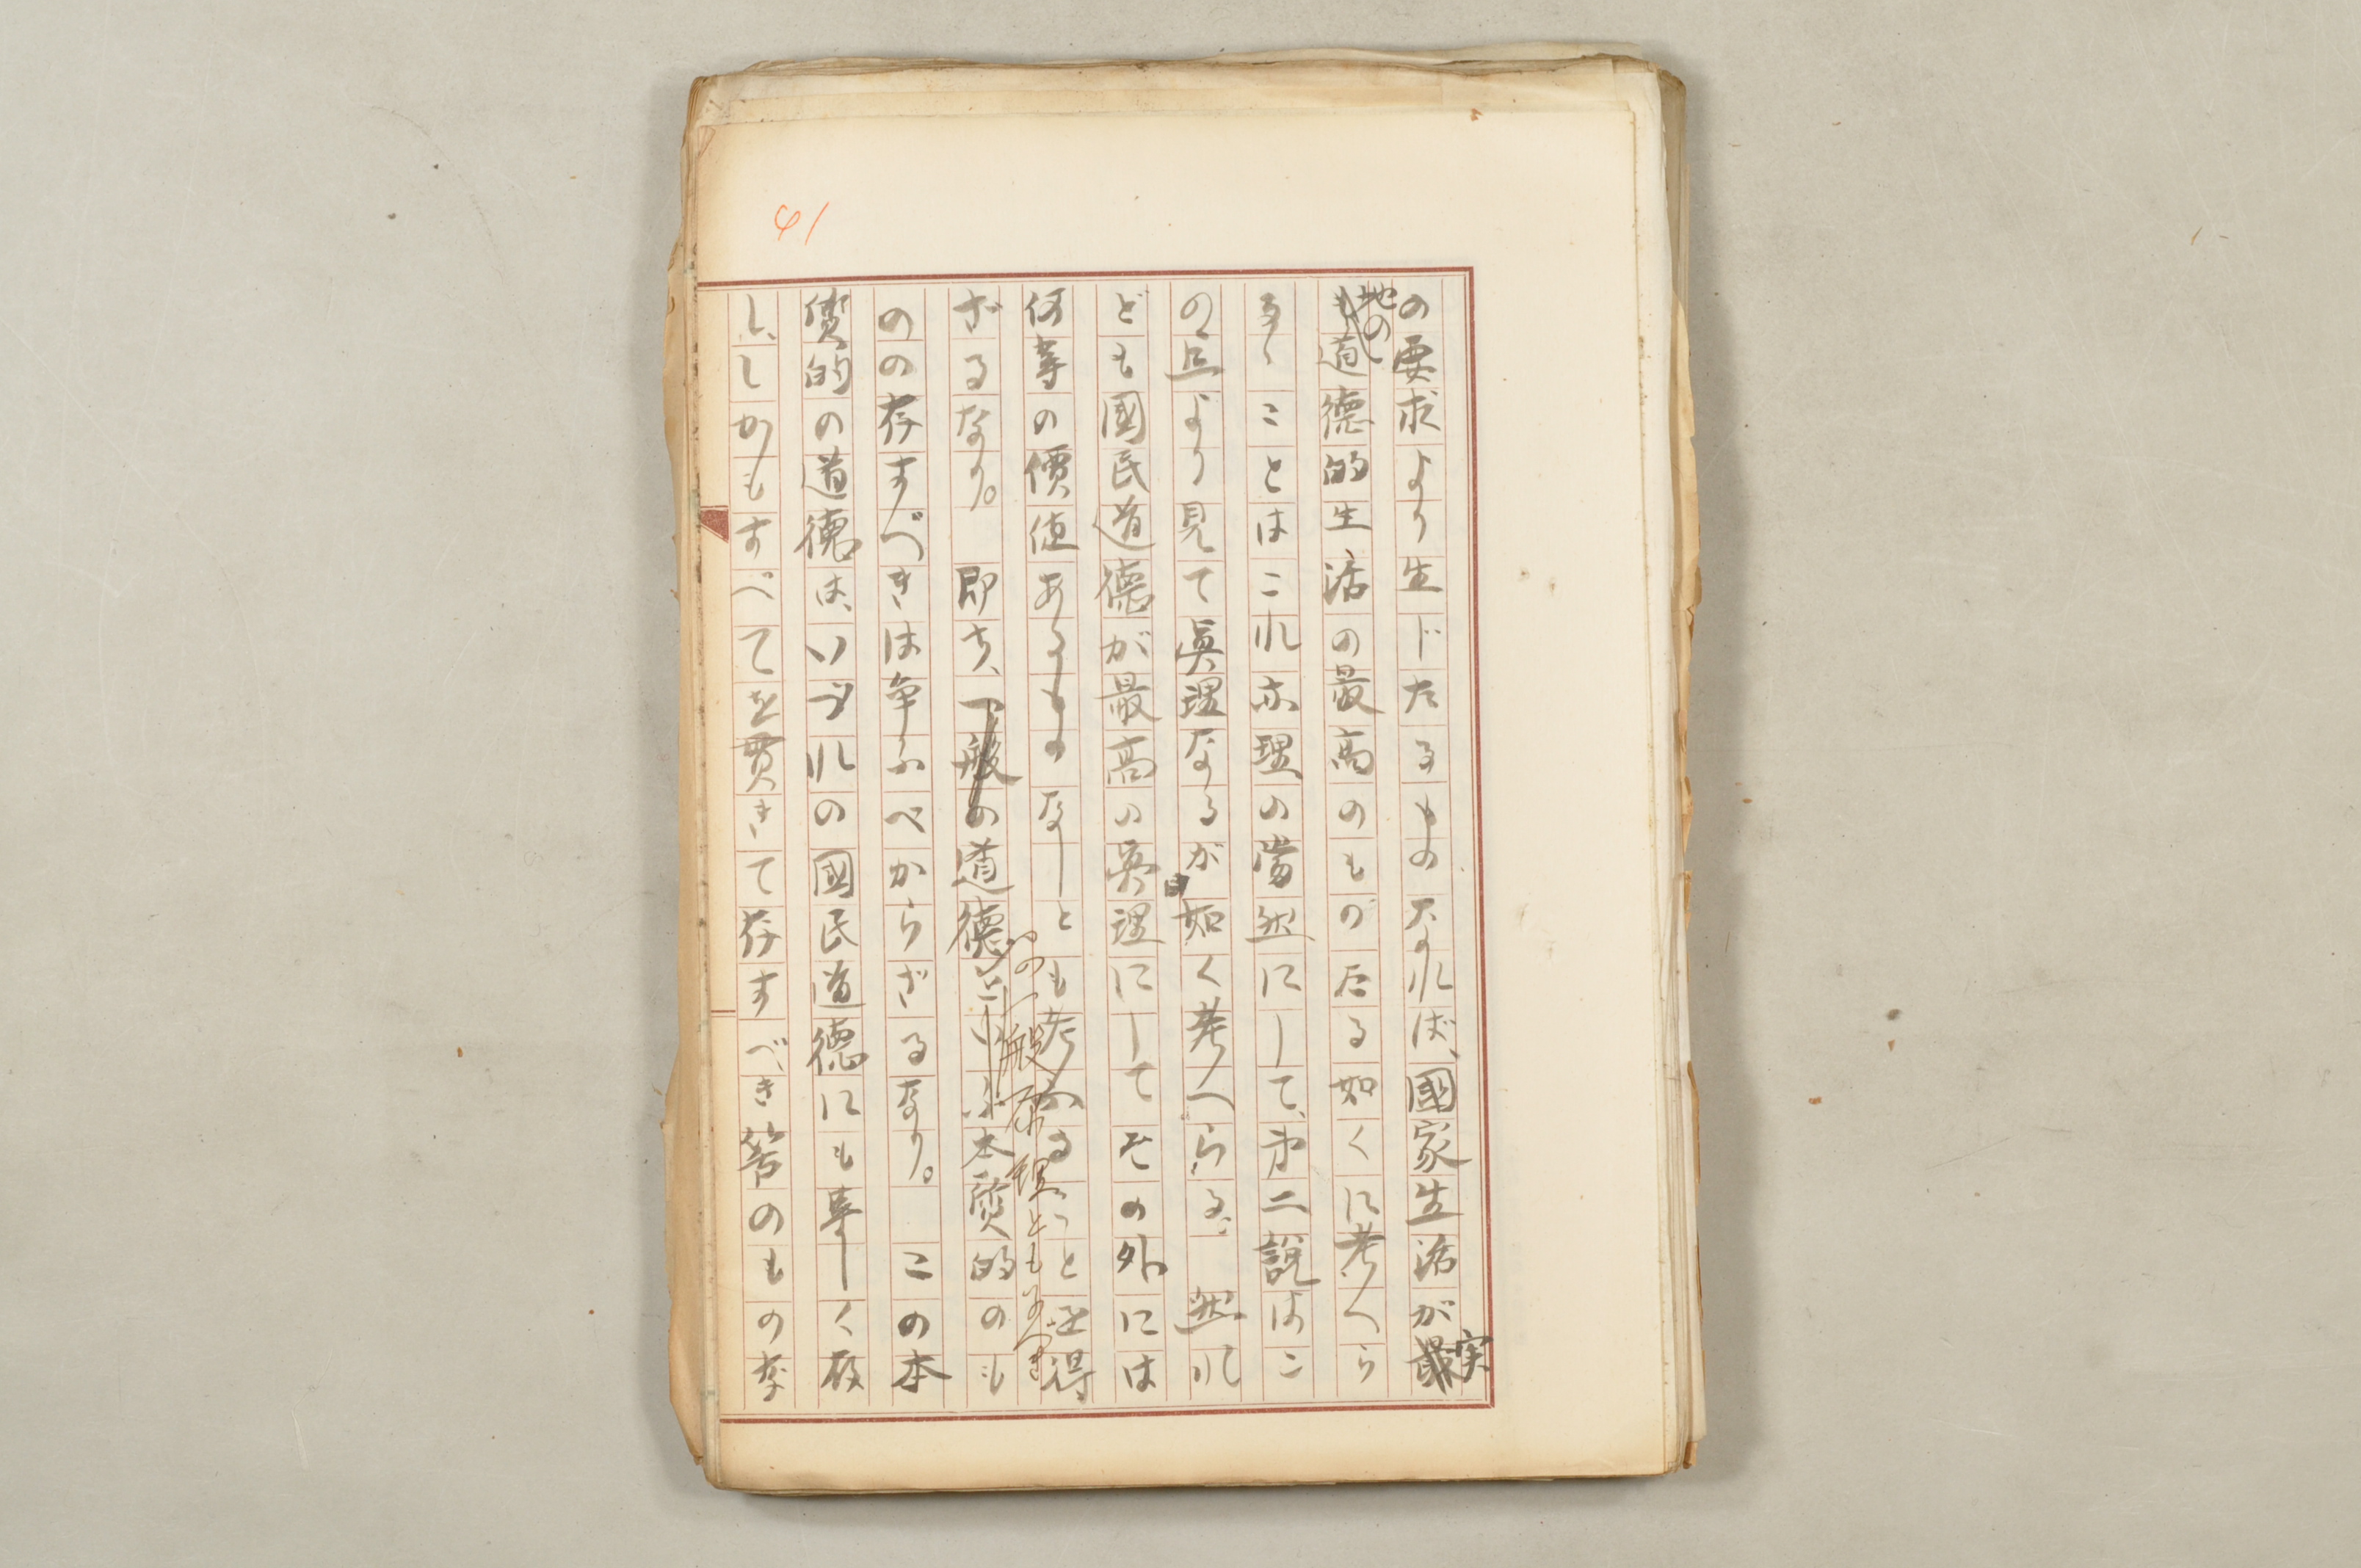 41
の要求より生じたるものなれば、國家生活が実
地の道德的生活の最高のものたる如くに考へら
るゝことはこれ亦理の當然にして、第二説はこ
の点より見て眞理なるが如く考へらる。然れ
ども國民道德が最高の眞理にしてその外には
何等の價値あるものなしとも考ふることを得
ざるなり。即ち、一般の道德といふ本質的のも
の一般原理ともいふべき
のの存すべきは争ふべからざるなり。この本
質的の道德は、いづれの國民道德にも事しく
し、しかもすべてを貫きて存すべき筈のものな